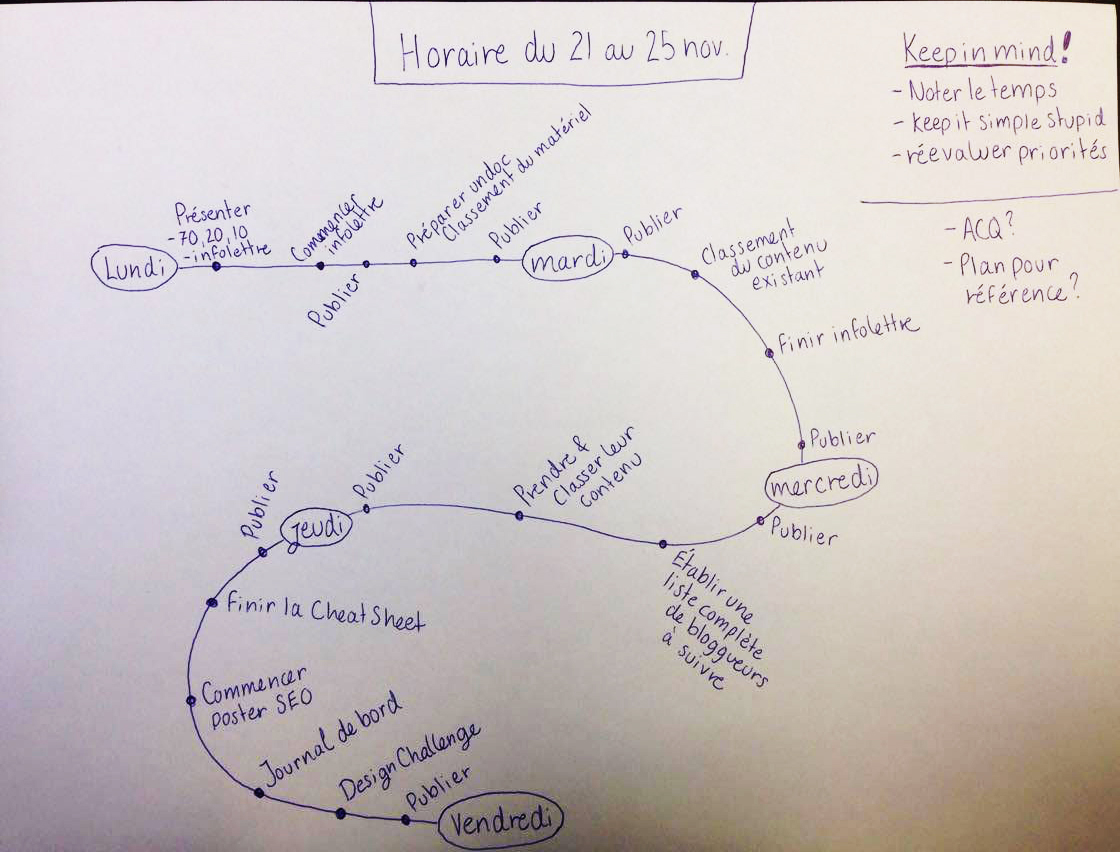 Horaire du 21 au 25 nov.
Keep in mind!
- Noter le temps
- keep it simple stupid
- réevaluer priorités
- ACQ?
- Plan pour
référence?
Lundi
Présenter
- 70, 20, 10
- infolettre
Commencer
infolettre
Publier
Préparer un doc
Classement du matériel
Publier
mardi
Publier
Classement
du contenu
existant
Finir infolettre
Publier
mercredi
Publier
Établir une
liste complète
de bloggueurs
à suivre
Prendre &
Classer leur
contenu
Publier
jeudi
Publier
Finir la Cheat Sheet
Commencer
poster SEO
Journal de bord
Design Challenge
Publier
Vendredi